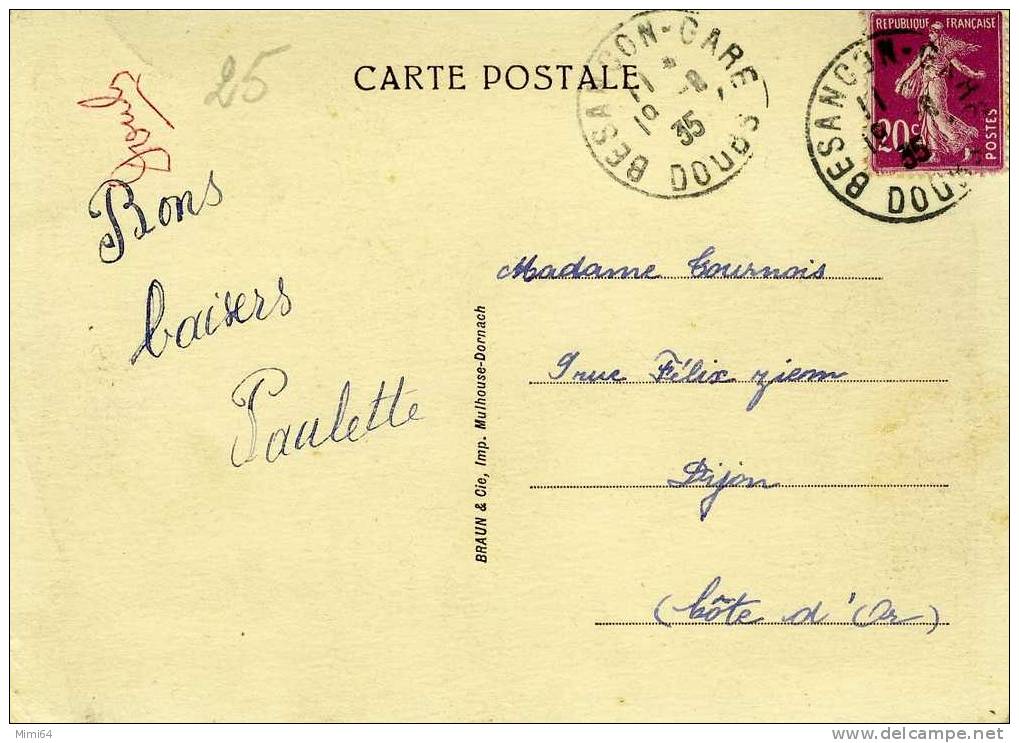 25
CARTE POSTALE
BESANÇON-GARE
35
DOUBS
REPUBLIQUE FRANÇAISE
20c
POSTES
BESANCON-GARE
35
DOUBS
Bons
baisers
Paulette
BRAUN & Cie, Imp. Mulhouse-Dornach
Madame Tournois
9 rue Félix Ziem
Dijon
(Côte d'Or)
Mimi64
www.delcampe.net